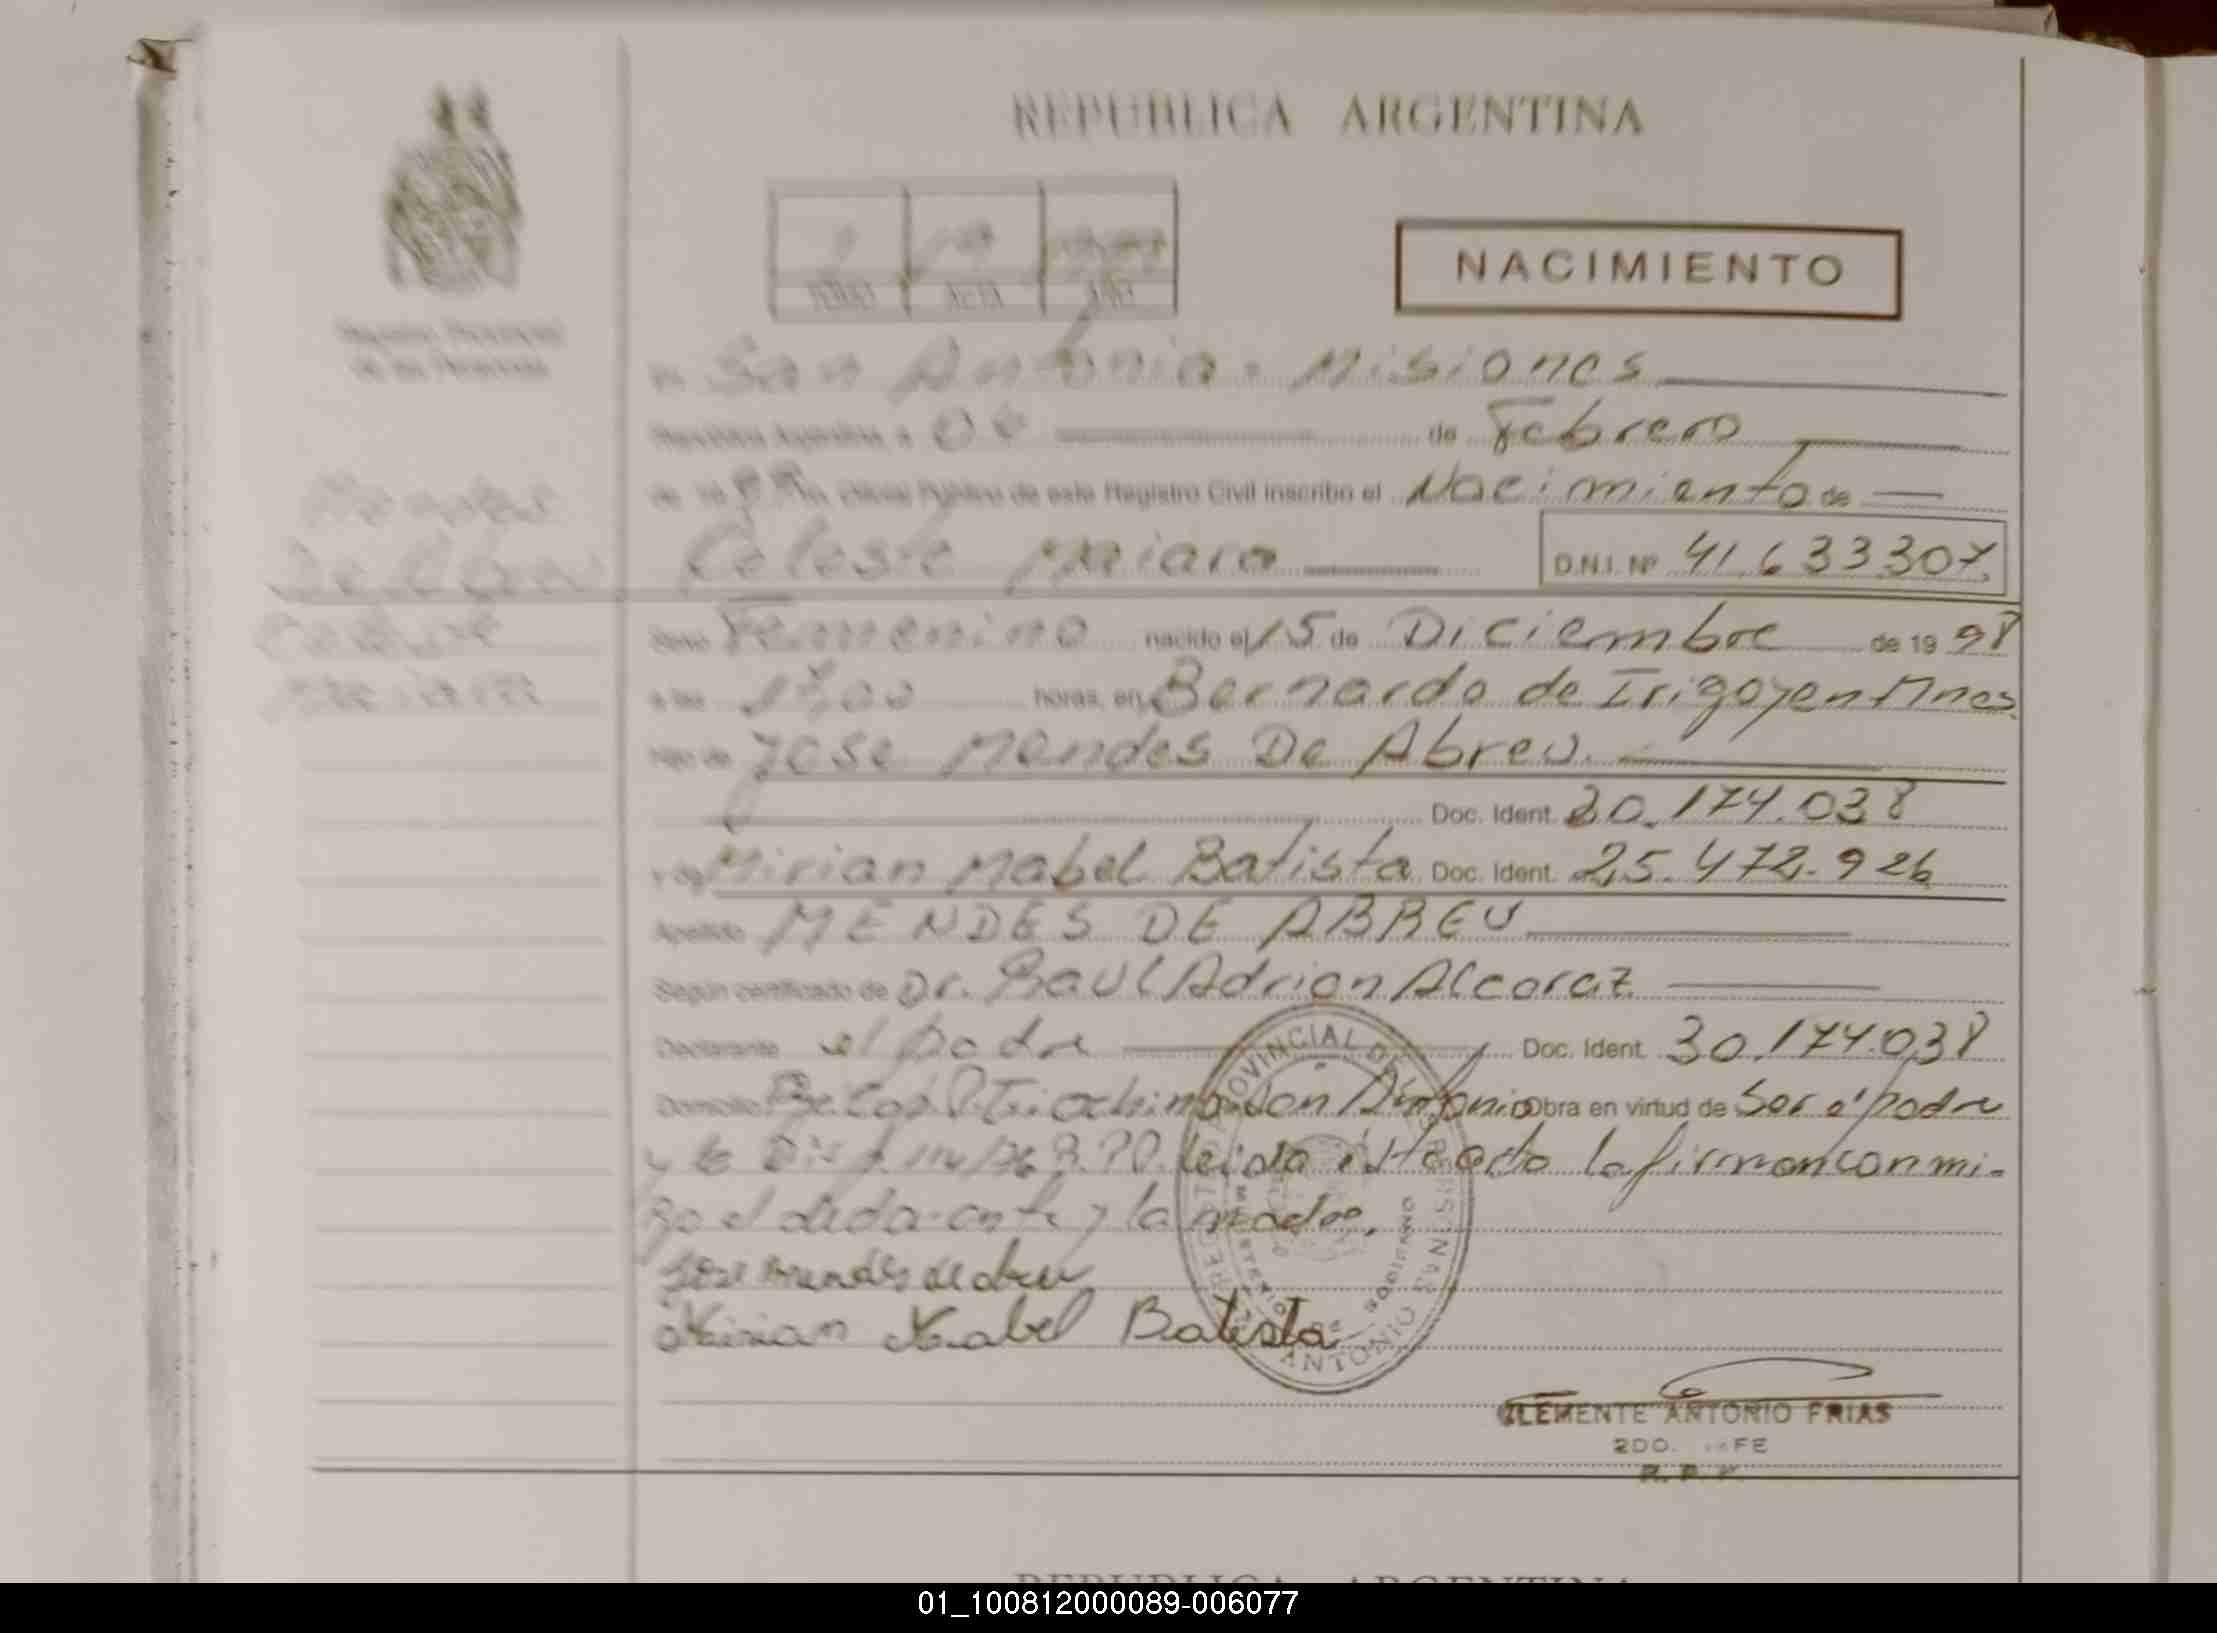 REPUBLICA ARGENTINA
TOMO ACTA AÑO
NACIMIENTO
Registro Provincial
de las Personas
En San Antonio - Misiones
República Argentina, a de Febrero
de 19 Oficial Público de este Registro Civil inscribo el Nacimiento de
Celeste Maiara D.N.I. Nº 41.633.307
Mendes
De Abreu
Celeste
Maiara
Sexo Femenino nacido el 15 de Diciembre de 1998
a las horas, en Bernardo de Irigoyen Mnes
hijo de Jose Mendes De Abreu.
Doc. Ident. 30.174.038
y de Mirian Mabel Batista Doc. Ident. 25.472.926
Apellido MENDES DE ABREU
Según certificado de Dr. Raul Adrian Alcaraz
Declarante el padre Doc. Ident. 30.174.038
Domicilio San Antonio Obra en virtud de Ser el padre
y leida el acta la firman conmi-
go el declarante y la madre.
Jose Mendes de abreu
Mirian Mabel Batista
REGISTRO PROVINCIAL DE LAS PERSONAS
MINISTERIO DE GOBIERNO
SAN ANTONIO
CLEMENTE ANTONIO FRIAS
2DO. JEFE
R. P. P.
REPUBLICA ARGENTINA
01_100812000089-006077